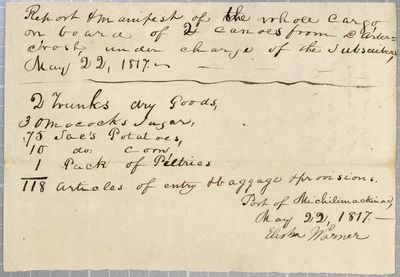 Report & manifest of the whole Cargo
on board of 2 Canoes from L'arbre
Crost, under charge of the Subscriber,
May 22, 1817.—
2 Trunks dry Goods,
30 Mococks Sugar,
75 Sac's Potatoes,
10 do: Corn,
1 Pack of Peltries
118 articles of entry & baggage & provisions.
Port of Michilimackinac,
May 22, 1817—
Warner